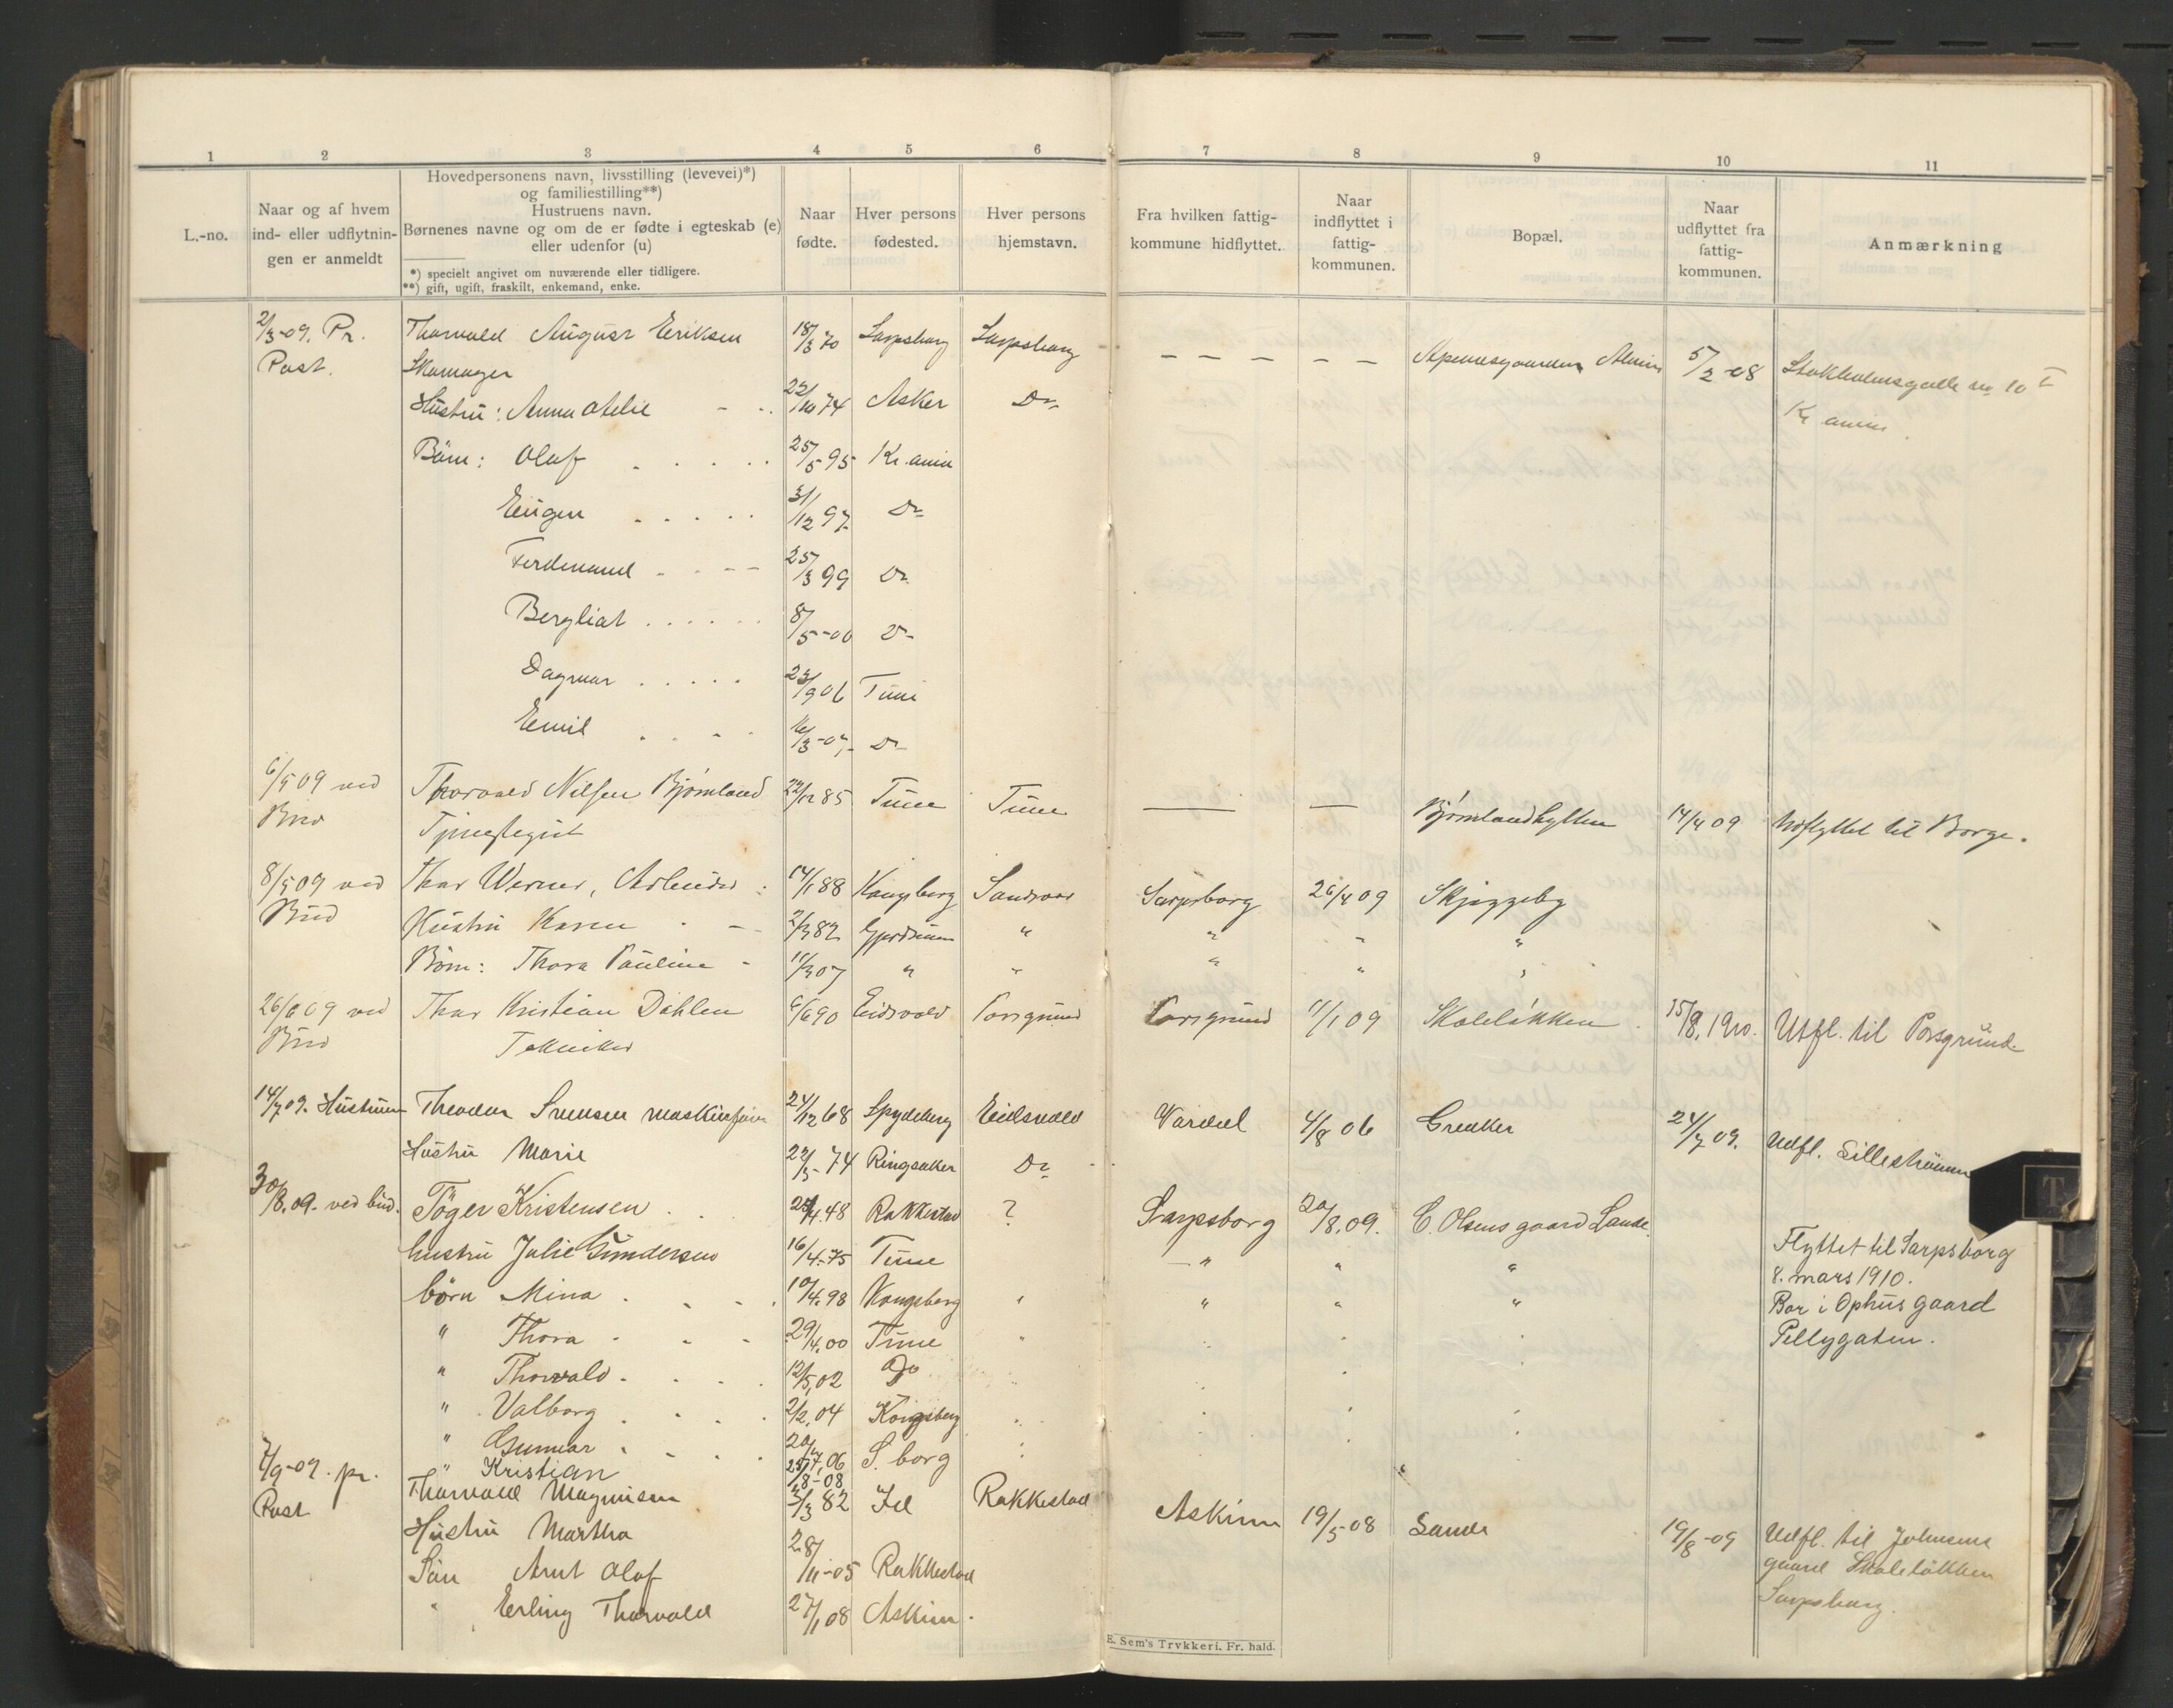 1 2 3 4 5 6 7 8 9 10 11
L.-no.
Naar og af hvem
ind- eller udflytnin-
gen er anmeldt
Hovedpersonens navn, livsstilling (levevei)*)
og familiestilling**)
Hustruens navn.
Børnenes navne og om de er fødte i egteskab (e)
eller udenfor (u)
*) specielt angivet om nuværende eller tidligere.
**) gift, ugift, fraskilt, enkemand, enke.
Naar
fødte.
Hver persons
fødested.
Hver persons
hjemstavn.
Fra hvilken fattig-
kommune hidflyttet.
Naar
indflyttet i
fattig-
kommunen.
Bopæl.
Naar
udflyttet fra
fattig-
kommunen.
Anmærkning
2/3-09. Pr. Thorvald August Eriksen 18/3 70 Sarpsborg Sarpsborg — — — — — 5/2-08 Stokholmsgade no 10 I
Post. Skomager Kr. ania
Hustru: Anna Otelie 22/10 74 Asker Do
Børn: Olaf 25/5 95 Kr. ania
Eugen 31/12 97 Do
Ferdinand 25/3 99 Do
Bergliot 8/5-00 Do
Dagmar 23/9 06 Tune
Emil 16/3-07 Do
6/5 09 ved Thorvald Nilsen Bjørnland 22/12 85 Tune Tune — — Bjørnlandhytten 14/4 09 Udflyttet til Borge.
Bud Tjenestegut
8/5 09 ved Thor Werner, Arbeider 14/1 88 Kongsberg Sandsvær Sarpsborg 26/4 09 Skjeggeby
Bud Hustru Karen 2/3 82 Gjerdrum " " " "
Børn: Thora Pauline 11/3 07 " " " " "
26/6 09 ved Thor Kristian Dahlen 6/6 90 Eidsvold Porsgrund Porsgrund 11/1 09 Skoleløkken 15/8. 1910. Utfl. til Porsgrund
Bud Tekniker
14/7 09. Hustruen Theodor Svensen 24/12 68 Spydeberg Eidsvold Vardal 4/8 06 Greaker 24/7 09. Udfl. Lillestrømmen
Hustru Marie 22/3-74 Ringsaker Do
30/8.09. ved bud. Tøger Kristensen 4.48 Rakkestad ? Sarpsborg 20/8.09. C. Olsens gaard Lande.
hustru Julie Gundersen 16/4-75 Tune " " " Flyttet til Sarpsborg
8. mars 1910.
børn Mina 10/4.98 Kongsberg " " " " Bor i Ophus gaard
" Thora 29/4.00 Tune " Pellygaten.
" Thorvald 12/5,02 Do
" Valborg 2/2.04 Kongsberg
" Gunnar 06 S.borg
" Kristian 8-08
7/9-09. pr. Thorvald Magnusen 3/3 82 Id Rakkestad Askim 19/5-08 Sande 19/8-09 Udfl. til Johnsens
Post Hustru Martha gaard Skoleløkken
Søn Arnt Olaf 28/11-05 Rakkestad Sarpsborg.
" Erling Thorvald 27/1 08 Askim
E. Sem's Trykkeri. Fr. hald.
T
V
W